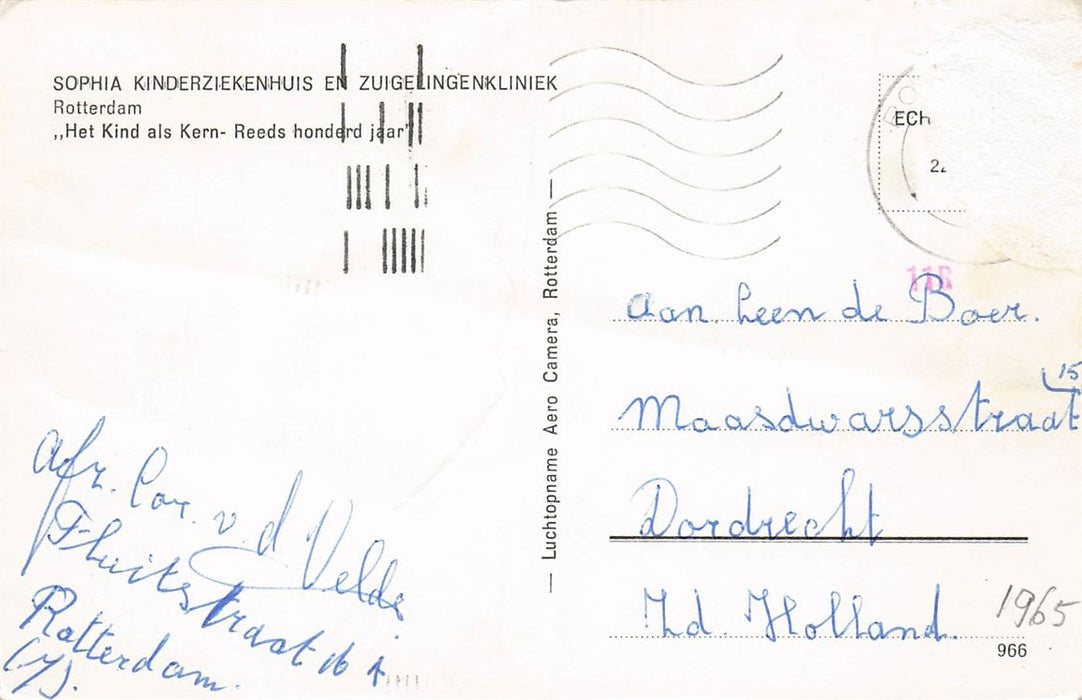 SOPHIA KINDERZIEKENHUIS EN ZUIGELINGENKLINIEK
Rotterdam
,,Het Kind als Kern- Reeds honderd jaar"
ECh
11R
Aan Leen de Boer.
15
Maasdwarsstraat
Dordrecht
Zd. Holland.
1965
966
— Luchtopname Aero Camera, Rotterdam —
Afz. Cor. v. d Velde
Fluitstraat 16
Rotterdam.